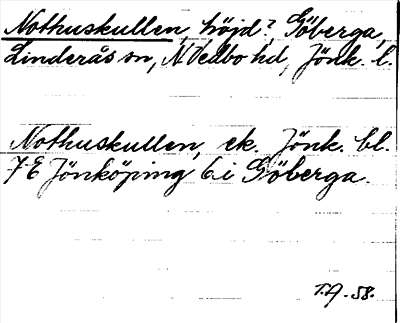 Nothuskullen, höjd?, Göberga,
Linderås sn, N Vedbo hd, Jönk. l.
Nothuskullen, ek. Jönk. bl.
7E Jönköping 6i Göberga.
T.A -58.